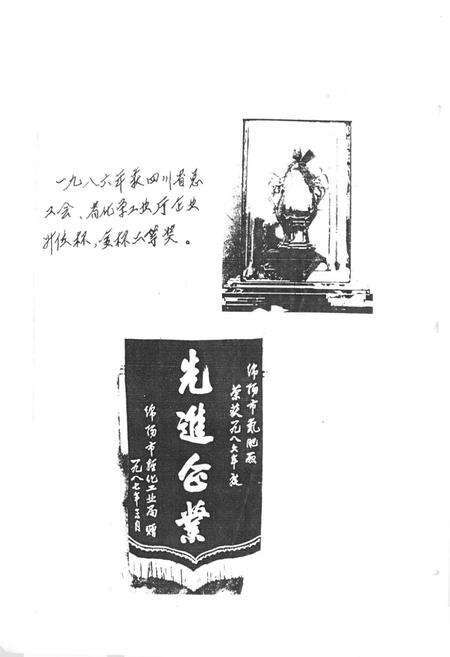 一九八六年获四川省总
工会、省化学工业厅企业
升级杯,金杯二等奖。
绵阳市氮肥厂
荣获一九八六年度
先進企業
绵阳市轻化工业局赠
一九八七年三月